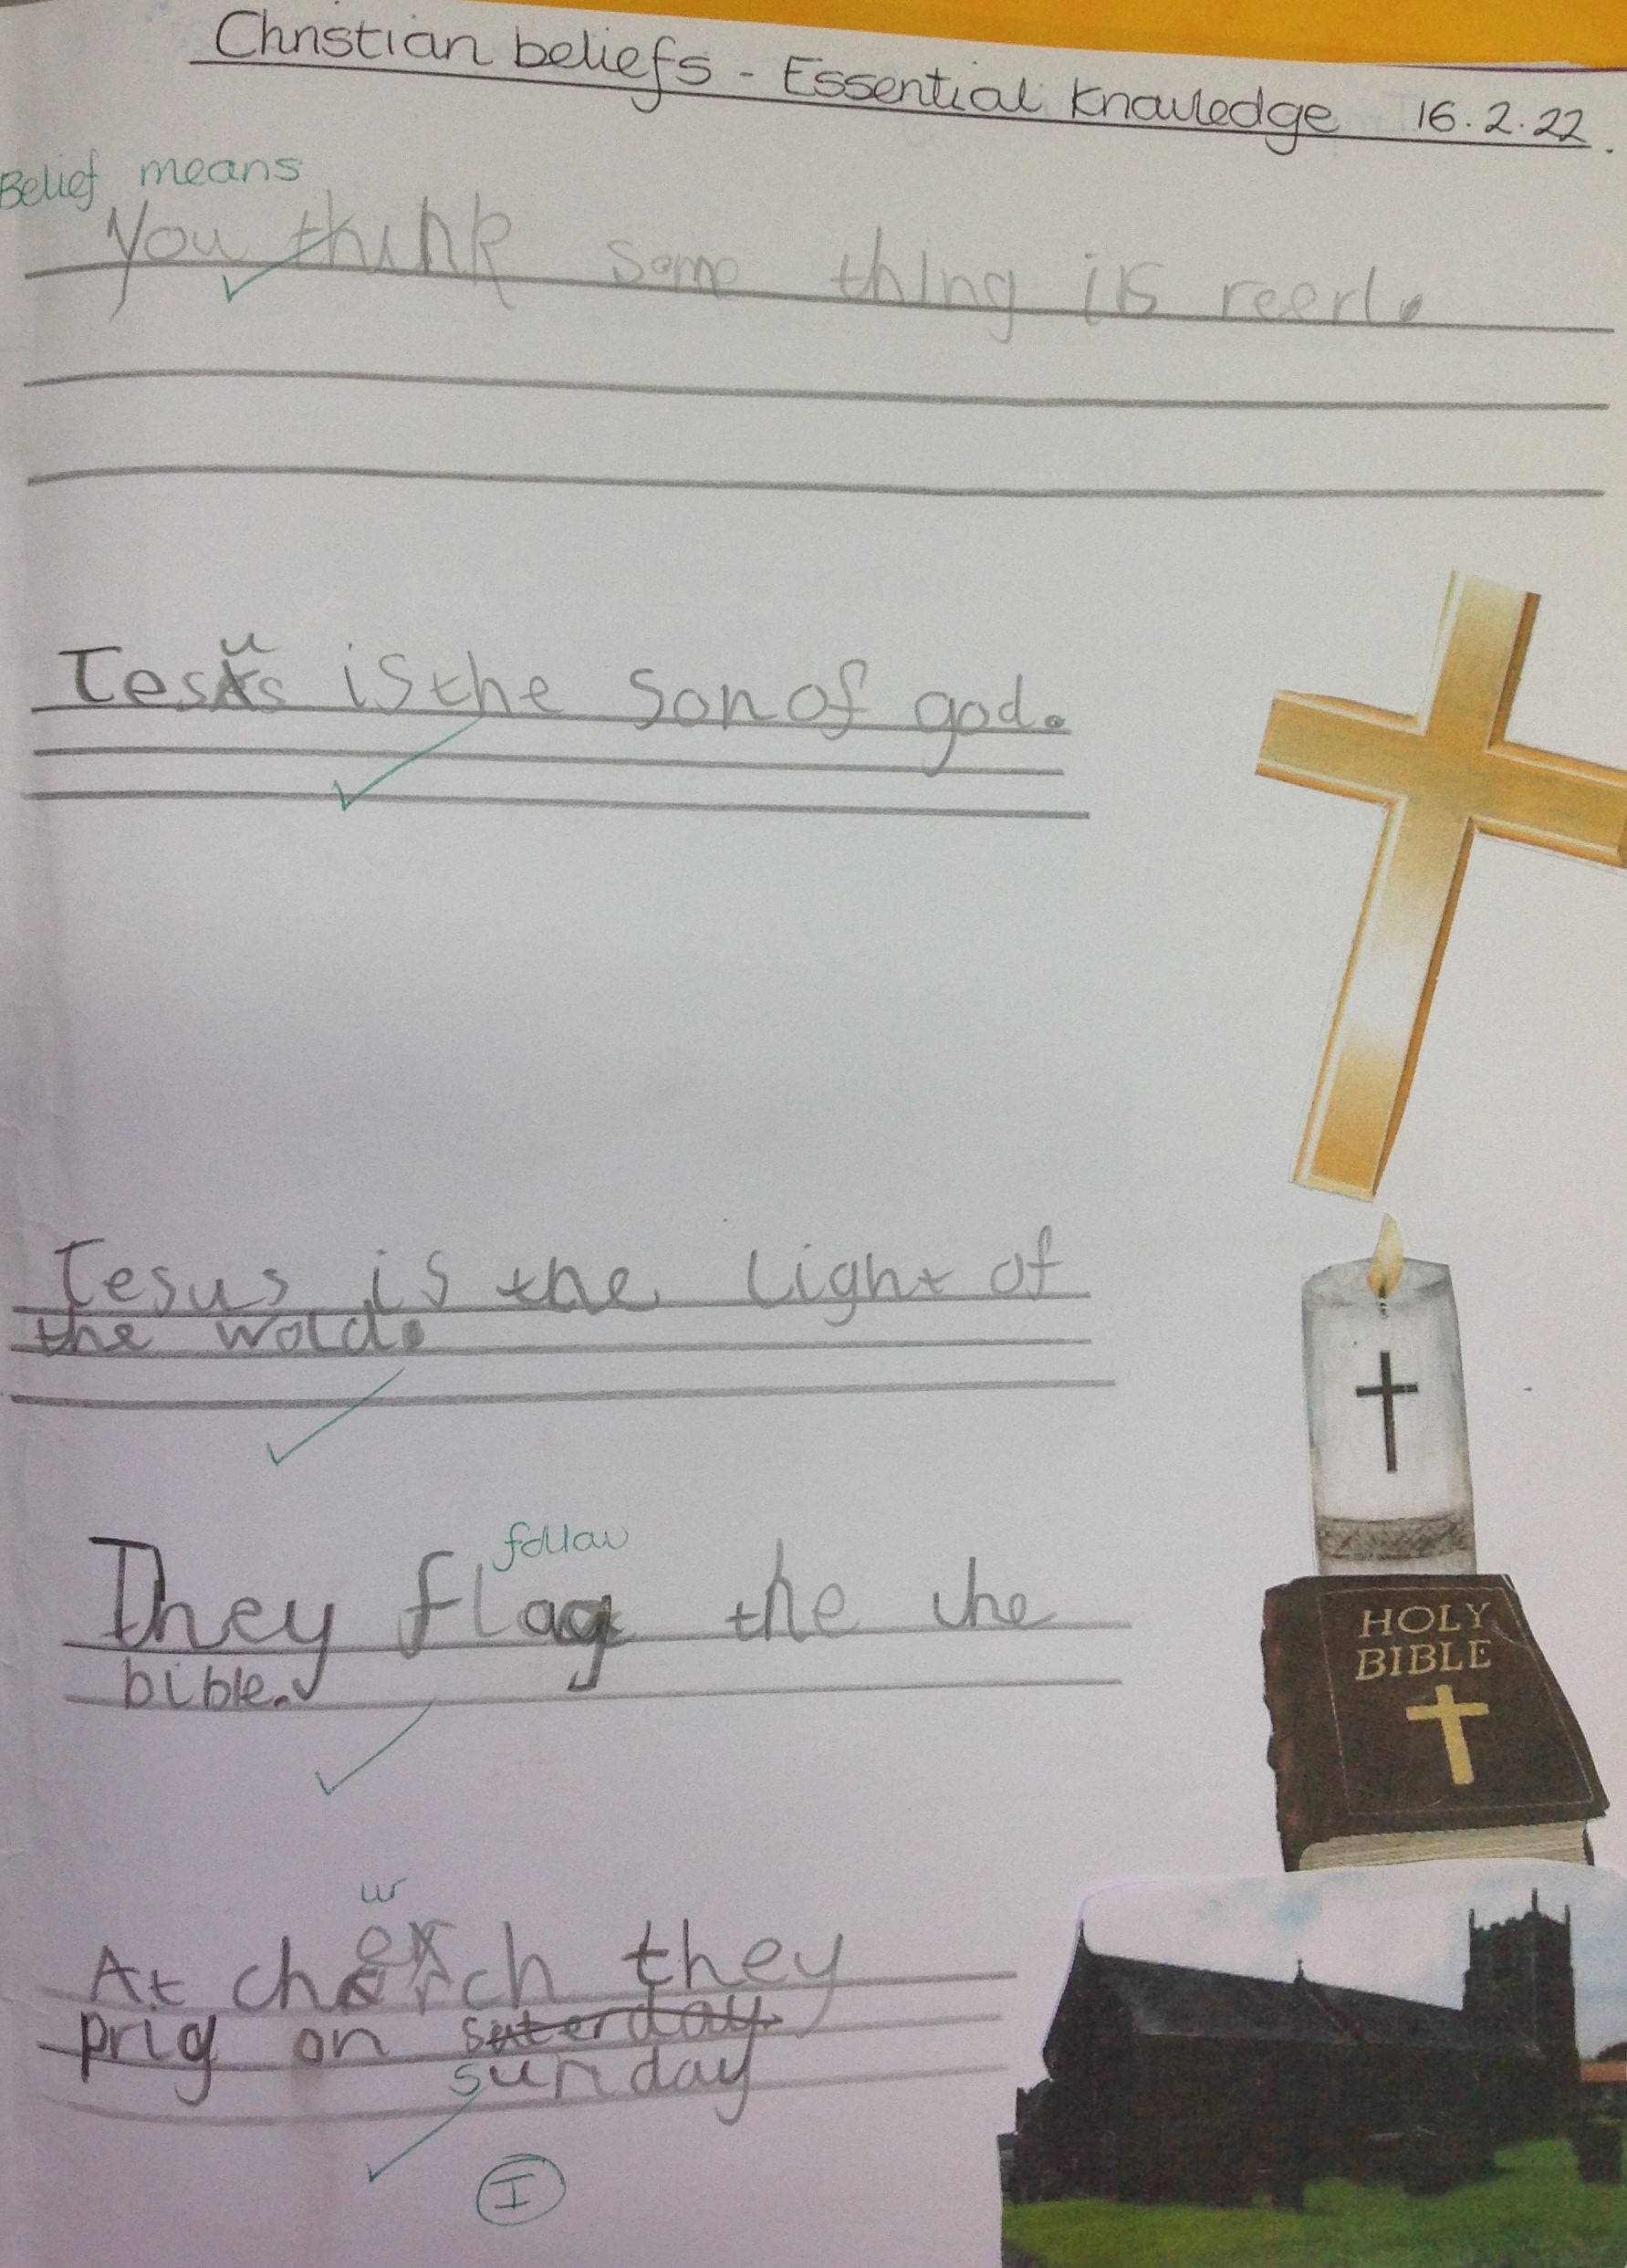 Christian beliefs - Essential Knowledge 16.2.22.
Belief means
You think some thing is reerl.
u
Jesus is the son of god.
Jesus is the light of
the wold.
follow
They flag the the
bible.
HOLY
BIBLE
ur
er
At charch they
prig on saterday.
sunday
I